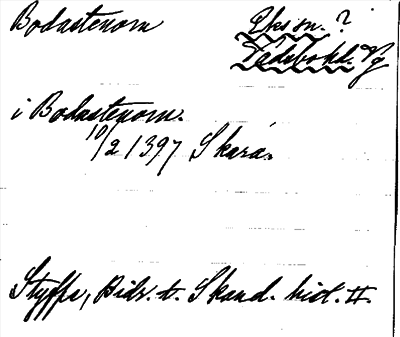 Bodastenom Öks sn. ?
Vadsbo hd. Vg
i Bodastenom.
10/2 1397 Skara.
Styffe, Bidr. t. Skand. hist. II.